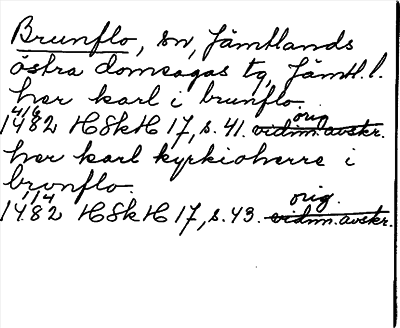 Brunflo, sn, Jämtlands
östra domsagas tg, Jämtl. l.
her karl i brunflo
4/6 1482 HSkH 17, s. 41. orig. vidim. avskr.
her karl kyrkioherre i
brvnflo
1/4 1482 HSkH 17, s. 43. orig. vidim. avskr.